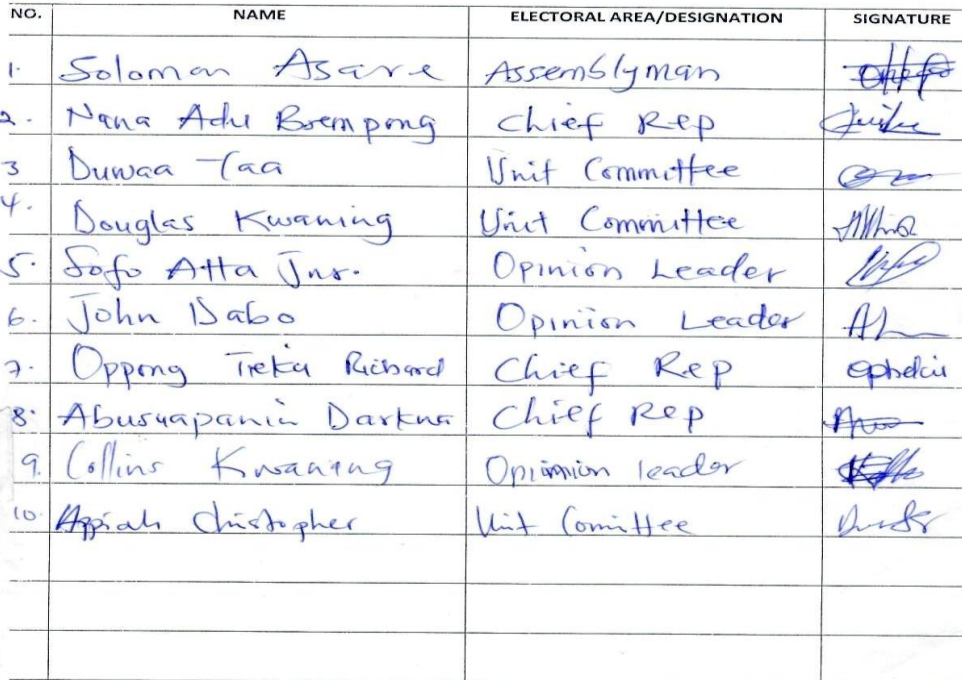 NO. NAME ELECTORAL AREA/DESIGNATION SIGNATURE
1. Solomon Asare Assemblyman
2. Nana Adu Brempong Chief Rep
3 Duwaa Taa Unit Committee
4. Douglas Kwaning Unit Committee
5. Sofo Atta Jnr. Opinion Leader
6. John Dabo Opinion Leader
7. Oppong Richard Chief Rep
8. Abusuapanin Chief Rep
9. Collins Kwaning Opinion leader
10 Appiah Christopher Unit Comittee